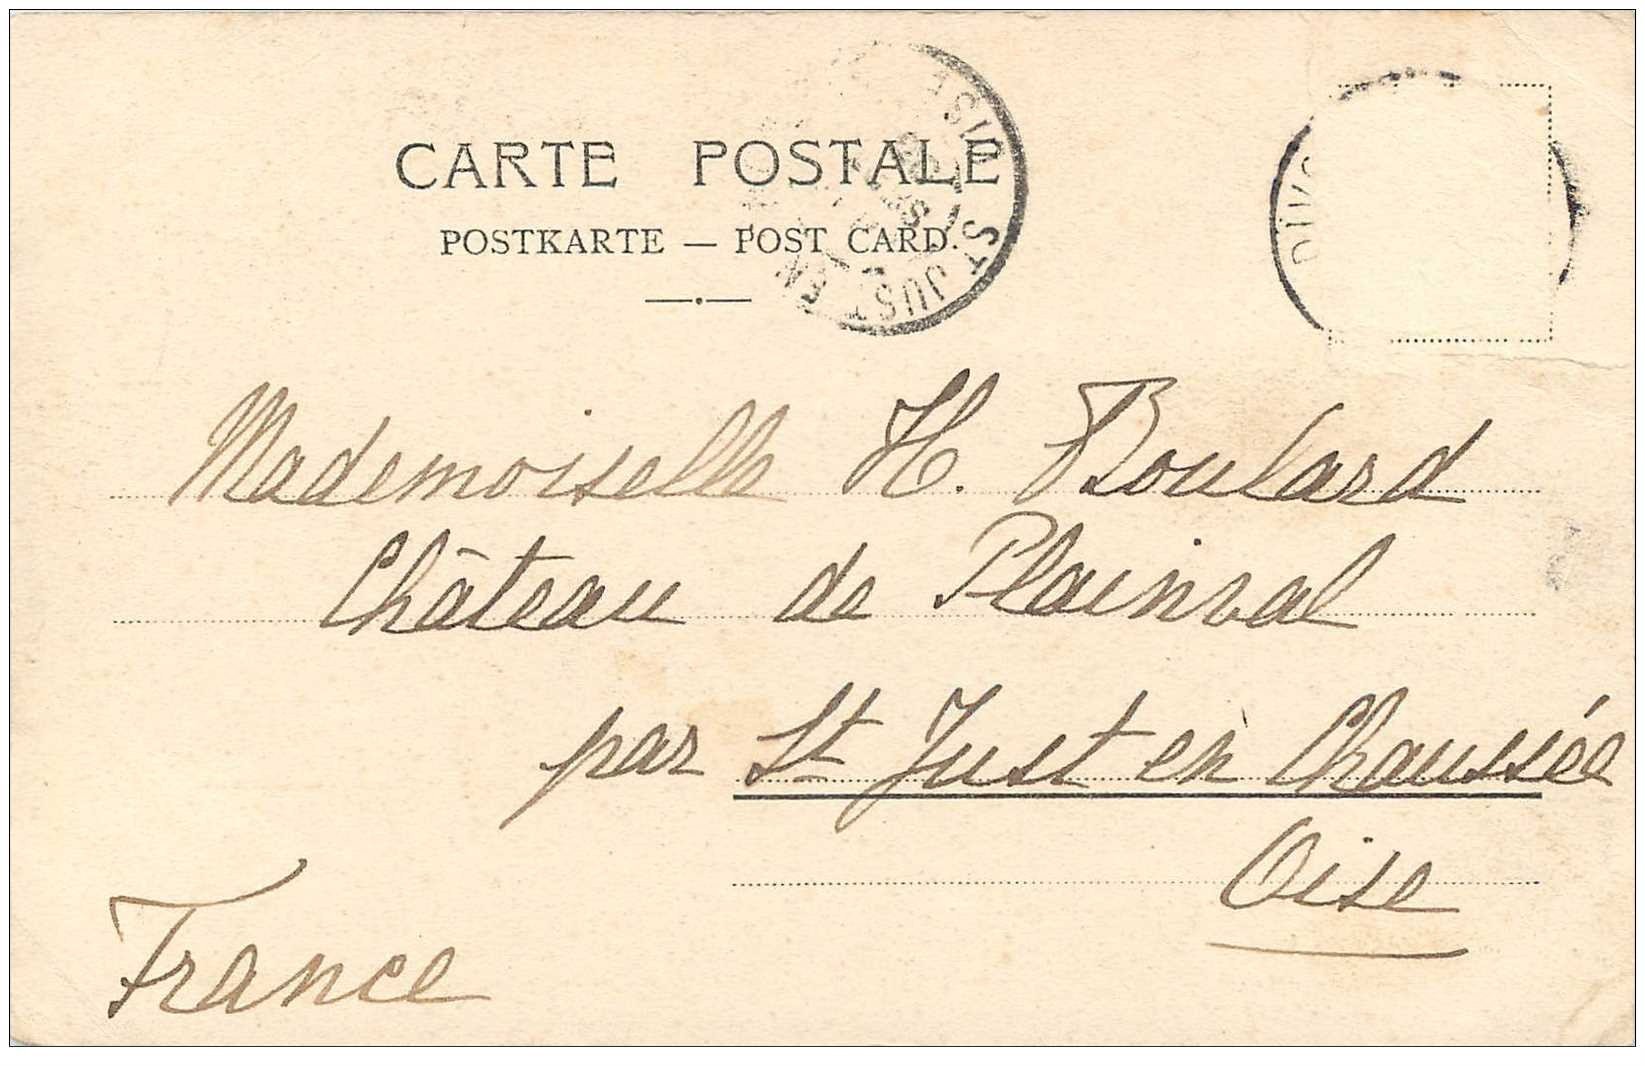 CARTE POSTALE
POSTKARTE — POST CARD.
ST JUST EN
OISE
Mademoiselle H. Boulard
Château de Plainval
par St Just en Chaussée
Oise
France